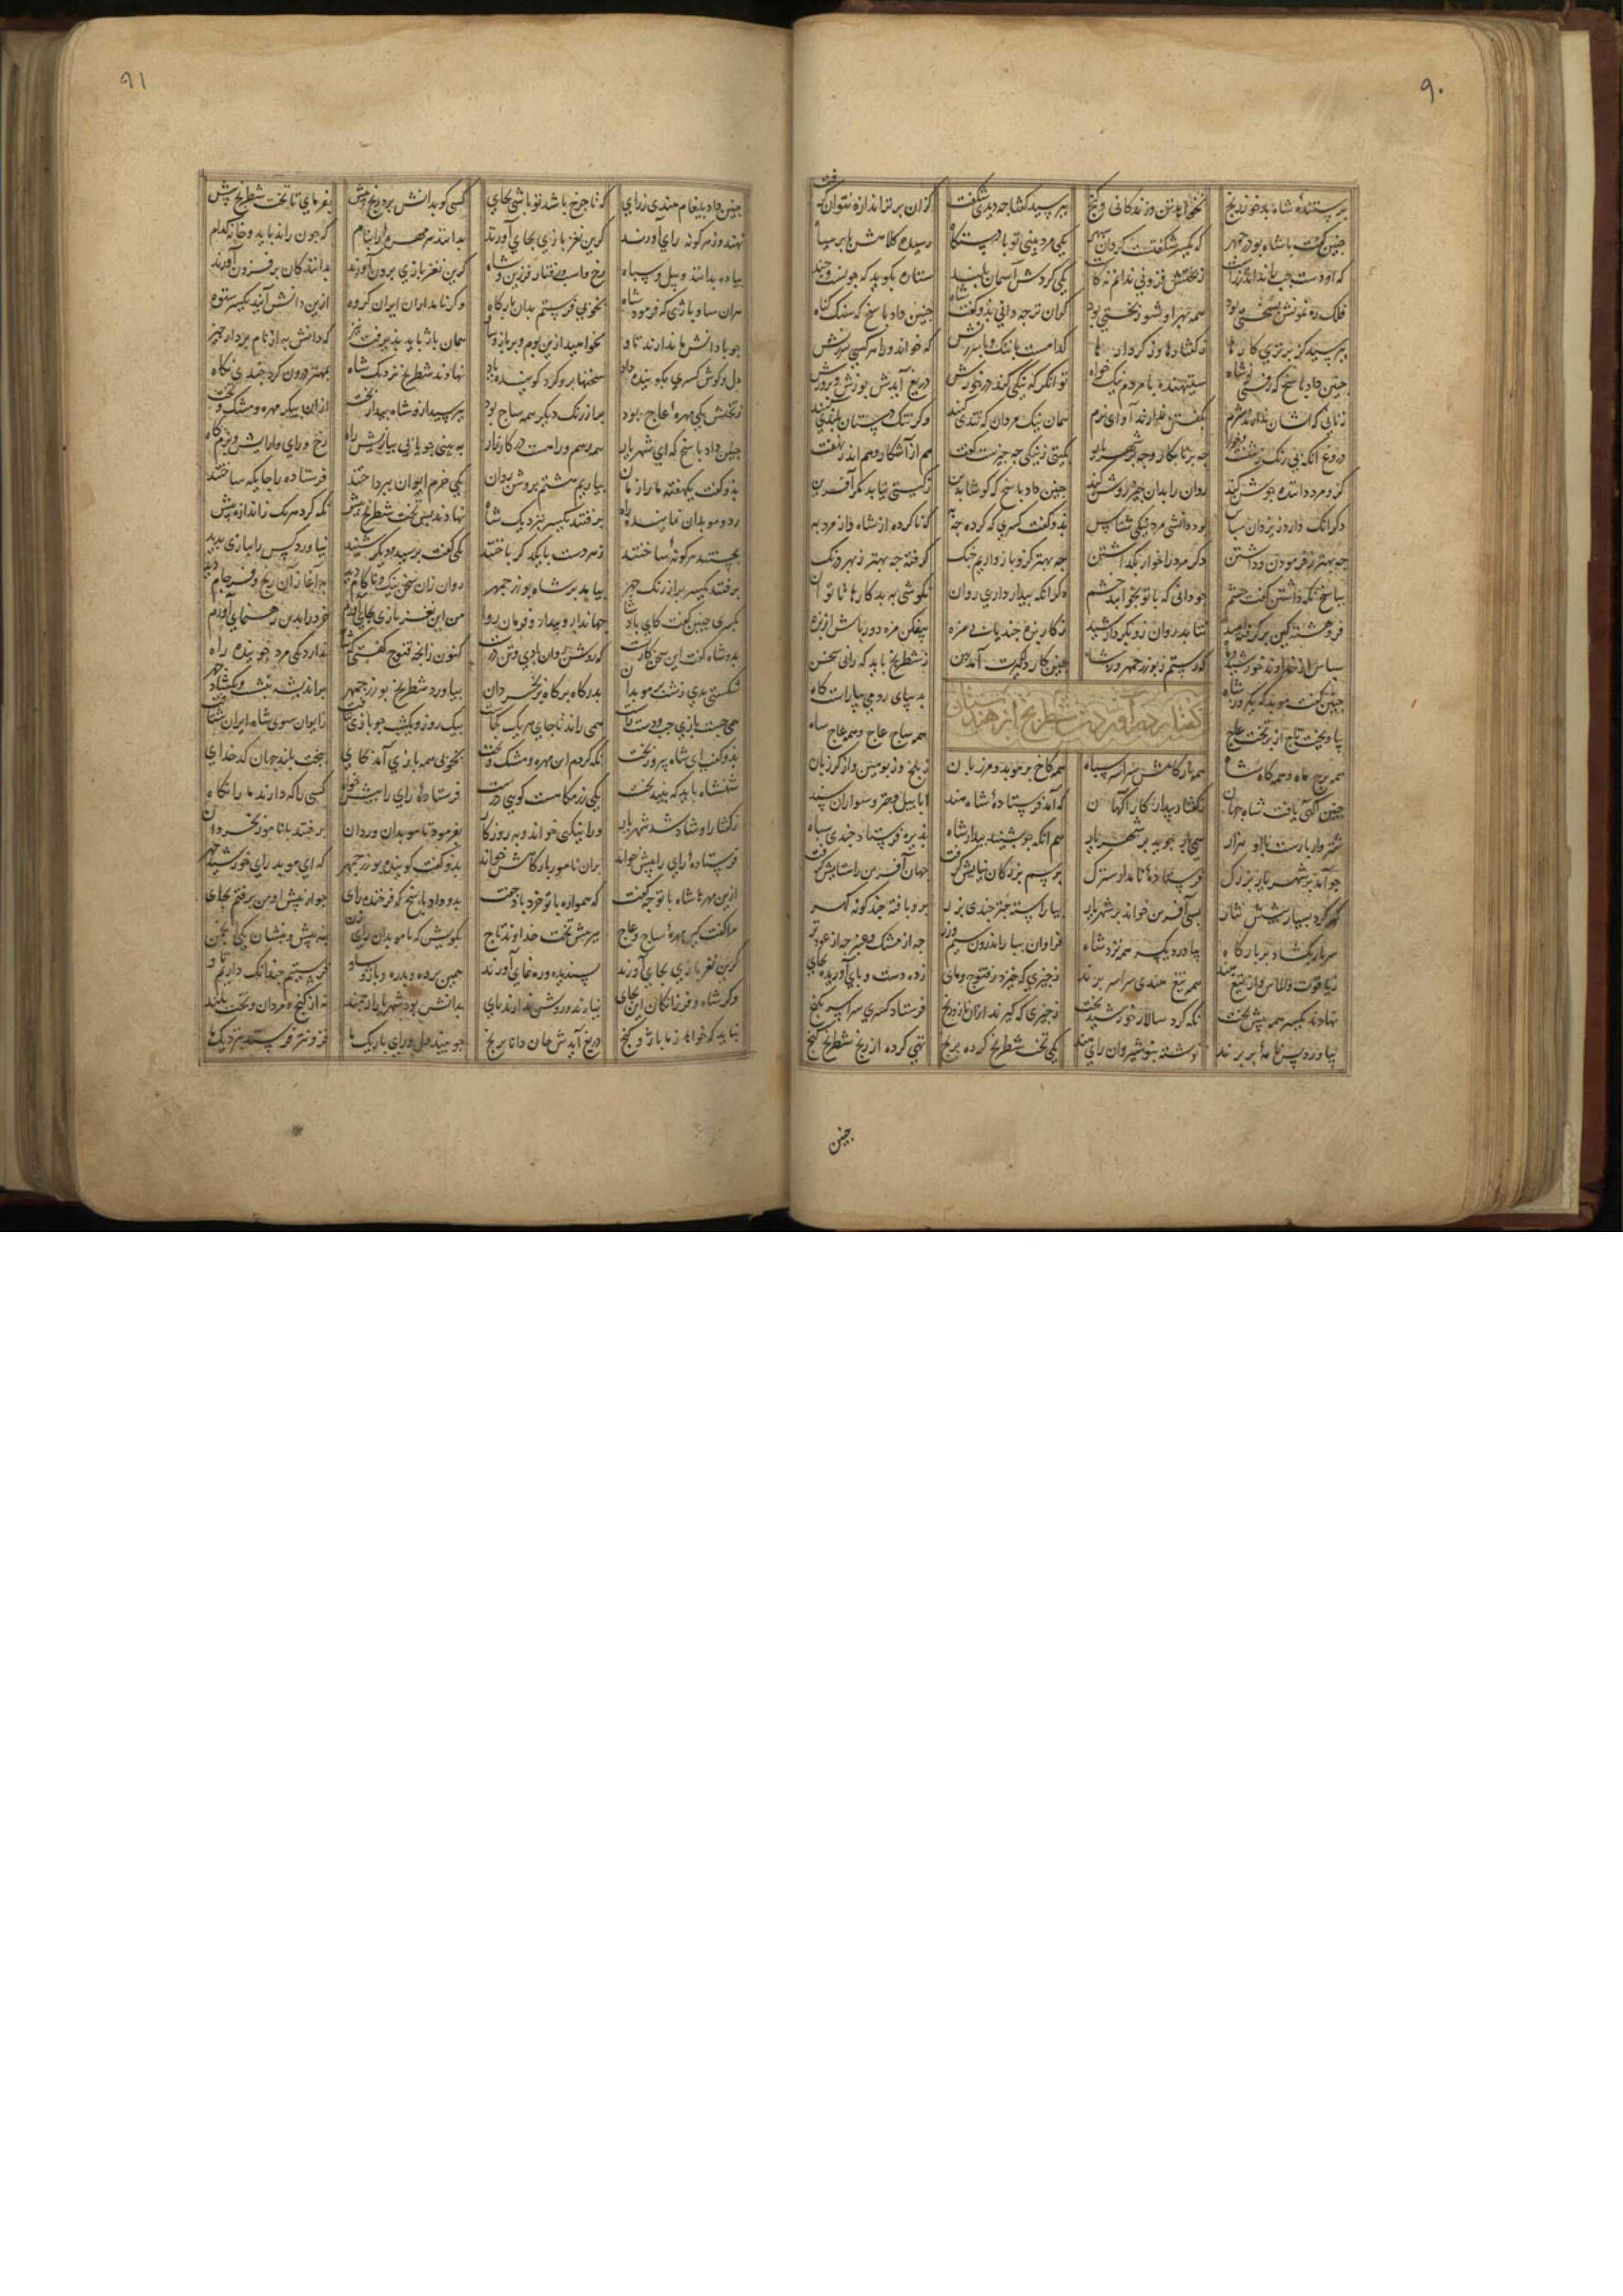 ۹۰
پرستندهٔ شاه بدخو ز رنج نخواهد تن و زندکانی و کنج بپرسید کفتا چه دیدی شکفت کزان برتر اندازه نتوان کرفت
چنین کفت با شاه بوزرجمهر که یکسر شکفتست کردان سپهر یکی مرد بینی تو با دستکاه رسیده کلاهش بابر سیاه
که او دست چپ را نداند ز راست ز بخشش فزونی نداند نه کاست یکی کردش آسمان بلند ستاره بکوید که چونست و چند
فلک رهنمونش بسختی بود همه بهر او شور بختی بود کران تر چه دانی بدو کفت شاه چنین داد پاسخ که سنک کناه
بپرسید کز برتری کارها ز کفتارها وز کردارها کدامست با ننک و با سرزنش که خواند ورا هر کسی بدکنش
چنین داد پاسخ که زفتی ز شاه ستیهنده با مردم نیک خواه توانکر که تنکی کند در خورش دریغ آیدش پوزش و پرورش
زنانی که ایشان ندارند شرم بکفتن ندارند آوای نرم همان نیک مردان که تندی کنند وکر تنک دستان بلندی کنند
دروغ آنکه بی رنک و زشتست و خوار چه بر نابکار و چه بر شهریار بکیتی ز نیکی چه چیزست کفت هم از آشکار و هم اندر نهفت
کزو مرد داننده جوشن کند روان را بدان چیز روشن کند چنین داد پاسخ که کوشا بدین ز کیتی نیابد مکر آفرین
دکر آنک دارد ز یزدان سپاس بود دانشی مرد نیکی شناس بدو کفت کسری که کرده چه به ز ناکرده از شاه وز مرد مه
چه بهتر ز فرمودن و داشتن وکر مرد را خوار بکذاشتن چه بهتر کزو باز داریم جنک کرفته چه بهتر ز بهر درنک
بپاسخ نکه داشتن کفت خشم چو دانی که با تو بخوابد چشم دکر آنکه بیدار داری روان بکوشی به بد کارها تا توان
فروهشته کین بر کرفته امید بتابد روان زو بکردار شید ز کار بزه چند یابی مزه بیفکن مزه دور باش از بزه
سپاس از خداوند خورشید و ماه که رستم ز بوزرجمهر و ز شاه چو این کار دلکیرت آمد ببن ز شطرنج باید که رانی سخن
کفتار در آوردن شطرنج از هندوستان
چنین کفت موبد که یک روز شاه بدیبای رومی بیاراست کاه
بیاویخت تاج از بر تخت عاج همه ساج عاج و همه عاج ساج
همه برج ماه و همه کاه شاه همه بارکاهش سراسر سپاه همه کاخ پر موبد و مرزبان ز بلخ و ز بامین و از کرزبان
چنین آکهی یافت شاه جهان ز کفتار بیدار کارآکهان که آمد فرستادهٔ شاه هند ابا پیل و چتر و سواران سند
شتروار بارست با او هزار همی راه جوید بر شهریار هم آنکه چو بشنید بیدار شاه پذیره فرستاد چندی سپاه
چو آمد بر شهریار بزرک فرستادهٔ نامدار سترک برسم بزرکان نیایش کرفت جهان آفرین را ستایش کرفت
کهر کرد بسیار پیشش نثار بسی آفرین خواند بر شهریار بیاراسته چتر هندی بزر برو بافته چند کونه کهر
سر بار بکشاد در بارکاه بیاورد یکسر همه نزد شاه فراوان ببار اندرون سیم و زر چه از مشک و عنبر چه از عود تر
ز یاقوت و الماس و از تیغ هند همه تیغ هندی سراسر پرند ز چیزی که خیزد ز قنوج و مای زده دست و پای آوریده بجای
نهادند یکسر همه پیش تخت نکه کرد سالار خورشید بخت ز چیزی که کیرند ازان راز رنج فرستاد کسری سراسر بکنج
بیاورد پس نامهٔ بر پرند نوشته بنوشیروان رای هند یکی تخت شطرنج کرده برنج تهی کرده از رنج شطرنج کنج
چنین
۹۱
چنین داد پیغام هندی ز رای که تا چرخ باشد تو باشی بجای کسی کو بدانش برد رنج بیش بفرمای تا تخت شطرنج پیش
نهند و ز هر کونه رای آورند کزین نغز بازی بجای آورند بدانند هر مهره را بنام که چون راند باید و خانه کدام
پیاده بدانند و پیل و سپاه رخ و اسب و رفتار فرزین و شاه کزین نغز بازی برون آورند بدانند کان بر فزون آورند
همان ساو و باژی که فرمود شاه بخوبی فرستم بدان بارکاه وکر نامداران ایران کروه ازین دانش آیند یکسر ستوه
چو با دانش ما ندارند تاو نخواهید ازین بوم و بر باژ و ساو همان باژ باید پذیرفت نیز که دانش به از نام بردار چیز
دل و کوش کسری بکوینده داد سخنها برو کرد کوینده یاد نهادند شطرنج نزدیک شاه بمهره درون کرد چندی نکاه
ز تختش یکی مهره از عاج بود پر از رنک دیکر همه ساج بود بپرسید ازو شاه بیدار بخت ازان پیکر و مهره و مشک و تخت
چنین داد پاسخ که ای شهریار همه رسم و راهست در کارزار به بینی چو یابی ببازیش راه رخ و رای و آرایش رزمکاه
بدو کفت یک هفته ما را زمان بیاریم هشتم بروشن روان یکی خرم ایوان بپرداختند فرستاده را جایکه ساختند
رد و موبدان نماینده راه برفتند یکسر بنزدیک شاه نهادند پس تخت شطرنج پیش نکه کرد هر یک ز اندازه بیش
بجستند هر کونهٔ ساختند ز هر دست با یکدکر باختند یکی کفت و پرسید و دیکر شنید نیاورد کس راه بازی پدید
برفتند یکسر پر آژنک چهر بیامد بر شاه بوزرجمهر روان زان سخن نیک ناکام دید به آغاز آن رنج فرجام دید
بکسری چنین کفت کای پادشا جهاندار و بیدار و فرمان روا من این نغز بازی بجای آورم خرد را بدین رهنمای آورم
بدو شاه کفت این سخن کار تست که روشن روان بادی و تن درست کنون رای قنوج کفتی که شاه ندارد یکی مرد جوینده راه
شکستی بدی زشت بر موبدان بدرکاه بر کاه بر بخردان بیاورد شطرنج بوزرجمهر پر اندیشه بنشست و بکشاد چهر
همی جست بازی چپ و دست راست همی راند تا جای هر یک کجاست بیک روز و یک شب چو بازی بیافت از ایوان سوی شاه ایران شتافت
بدو کفت ای شاه پیروز بخت نکه کردم این مهره و مشک و تخت بخوبی همه بازی آمد بجای ببخت بلند جهان کدخدای
شهنشاه باید که بیند نخست یکی رزمکاهست کویی درست فرستادهٔ رای را پیش خواه کسی را که دارند ما را نکاه
ز کفتار او شاد شد شهریار ورا نیک پی خواند و به روزکار بفرمود تا موبدان و ردان برفتند با نامور بخردان
فرستادهٔ رای را پیش خواند بران نامور بارکاهش نشاند بدو کفت کوینده بوزرجمهر که ای موبد رای خورشید چهر
ازین مهرها شاه با تو چه کفت که همواره با تو خرد باد جفت بدو داد پاسخ که فرخنده رای چو از پیش او من برفتم بجای
مرا کفت کین مهرهٔ ساج و عاج ببر پیش تخت خداوند تاج بکویش که با موبدان رای زن بنه پیش و بنشان یکی انجمن
کزین نغز بازی بجای آورند پسندیده و ره نمای آورند همین برده و بدره و باژ و ساو فرستیم چندانک داریم تاو
وکر شاه و فرزانکان این بجای نیارند و روشن ندارند رای بدانش بود شهریار ارجمند نه از کنج و مردان و تخت بلند
نباید که خواهد ز ما باژ و کنج دریغ آیدش جان دانا برنج چو بیند دل و رای باریک ما فزونتر فرستد بنزدیک ما